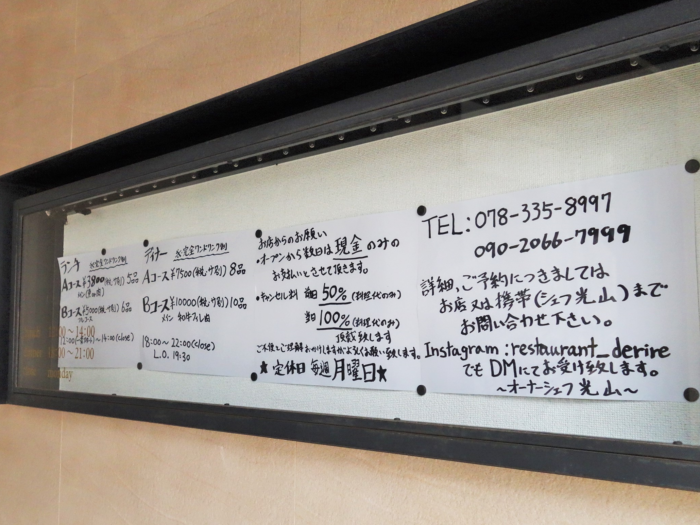 ランチ ※完全ワンドリンク制
Aコース ¥3800(税,サ別) 5品
Bコース ¥5000(税,サ別) 6品
14:00(close)
ディナー ※完全ワンドリンク制
Aコース ¥7500(税,サ別) 8品
Bコース ¥10000(税,サ別) 10品
メイン 和牛フィレ肉
18:00〜22:00(close)
L.O. 19:30
お店からのお願い
・オープンから数日は現金のみの
お支払いとさせて頂きます。
・キャンセル料 前日 50%(お料理代のみ)
当日 100%(お料理代のみ)
頂戴致します
ご不便,ご理解おかけしますがよろしくお願い致します。
★定休日 毎週月曜日★
TEL:078-335-8997
090-2066-7999
詳細、ご予約につきましては
お店又は携帯(シェフ光山)まで
お問い合わせ下さい。
Instagram:restaurant_derire
でもDMにてお受け致します。
〜オーナーシェフ光山〜
〜14:00
〜21:00